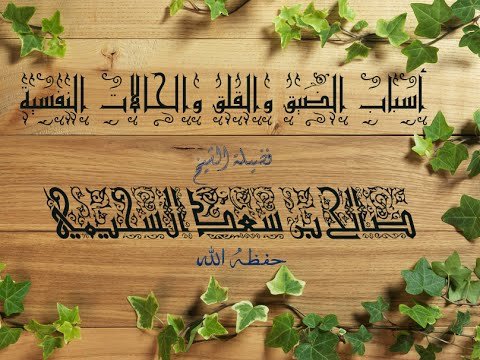 أسباب الضيق والقلق والحالات النفسية
فضيلة الشيخ
صالح بن سعد السحيمي
حفظهُ الله